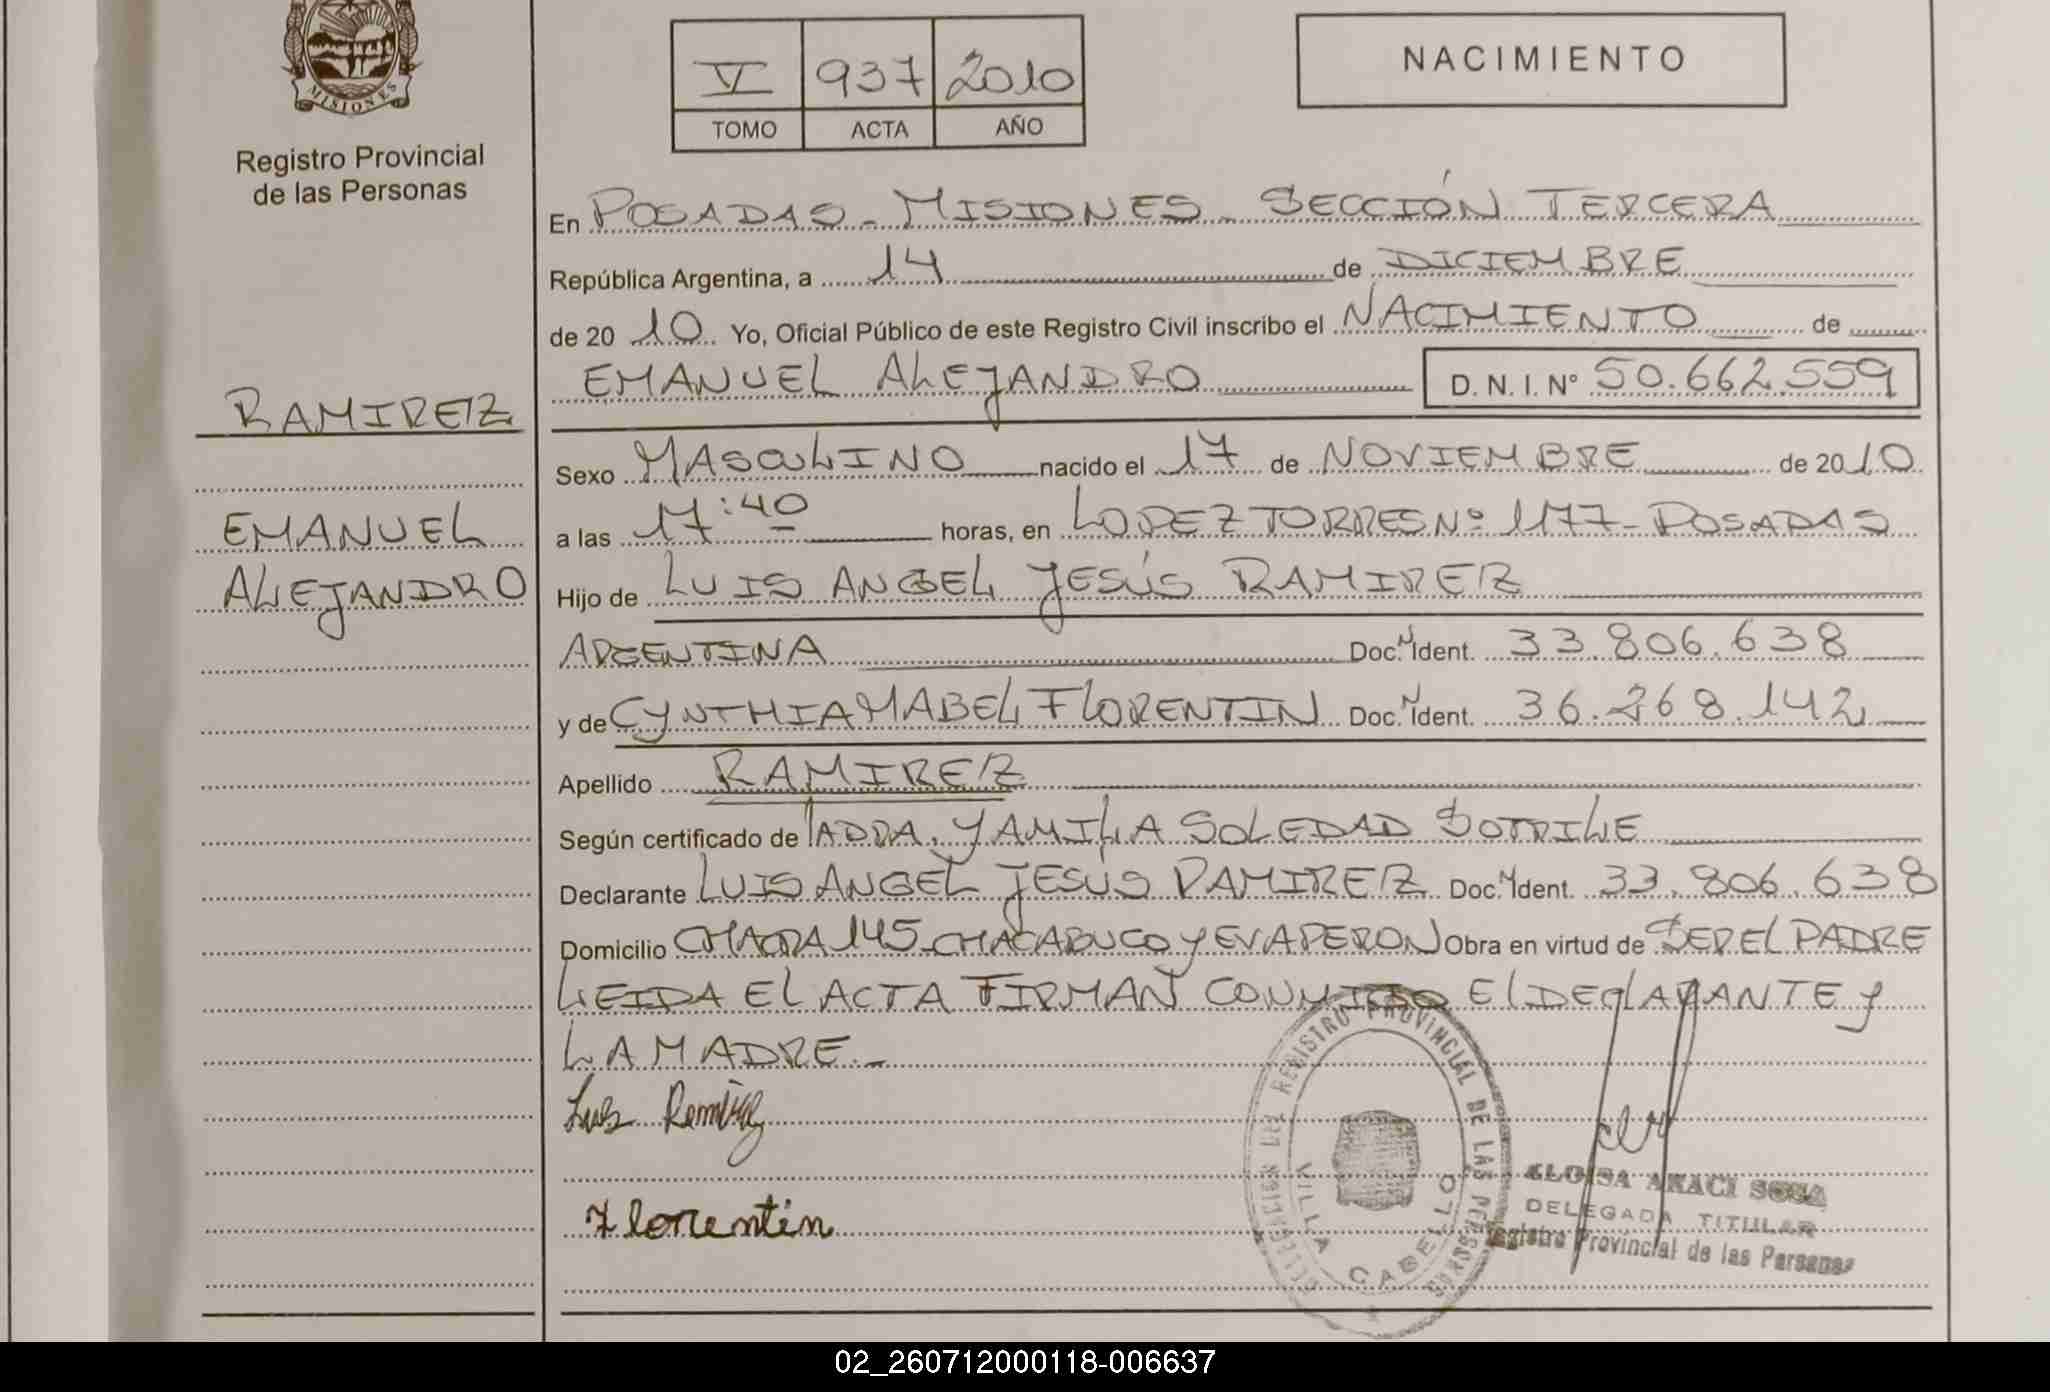 MISIONES
Registro Provincial
de las Personas
RAMIREZ
EMANUEL
ALEJANDRO
V 937 2010
TOMO ACTA AÑO
NACIMIENTO
En POSADAS - MISIONES - SECCIÓN TERCERA
República Argentina, a 14 de DICIEMBRE
de 2010 Yo, Oficial Público de este Registro Civil inscribo el NACIMIENTO de
EMANUEL ALEJANDRO D. N. I. N° 50.662.559
Sexo MASCULINO nacido el 17 de NOVIEMBRE de 2010
a las 17:40 horas, en LOPEZ TORRES Nº 1177 - POSADAS
Hijo de LUIS ANGEL JESÚS RAMIREZ
ARGENTINA Doc. N Ident. 33.806.638
y de CYNTHIA MABEL FLORENTIN Doc. N Ident. 36.268.142
Apellido RAMIREZ
Según certificado de LA DRA. YAMILA SOLEDAD SOTRILE
Declarante LUIS ANGEL JESÚS RAMIREZ Doc. N Ident. 33.806.638
Domicilio CHACRA 145 - CHACABUCO Y EVA PERON Obra en virtud de SER EL PADRE
LEIDA EL ACTA FIRMAN CONMIGO EL DECLARANTE Y
LA MADRE.-
Luis Ramirez
Florentin
DELEGACION DEL REGISTRO PROVINCIAL DE LAS PERSONAS
VILLA CABELLO
ELOISA ARACI SOSA
DELEGADA TITULAR
Registro Provincial de las Personas
02_260712000118-006637